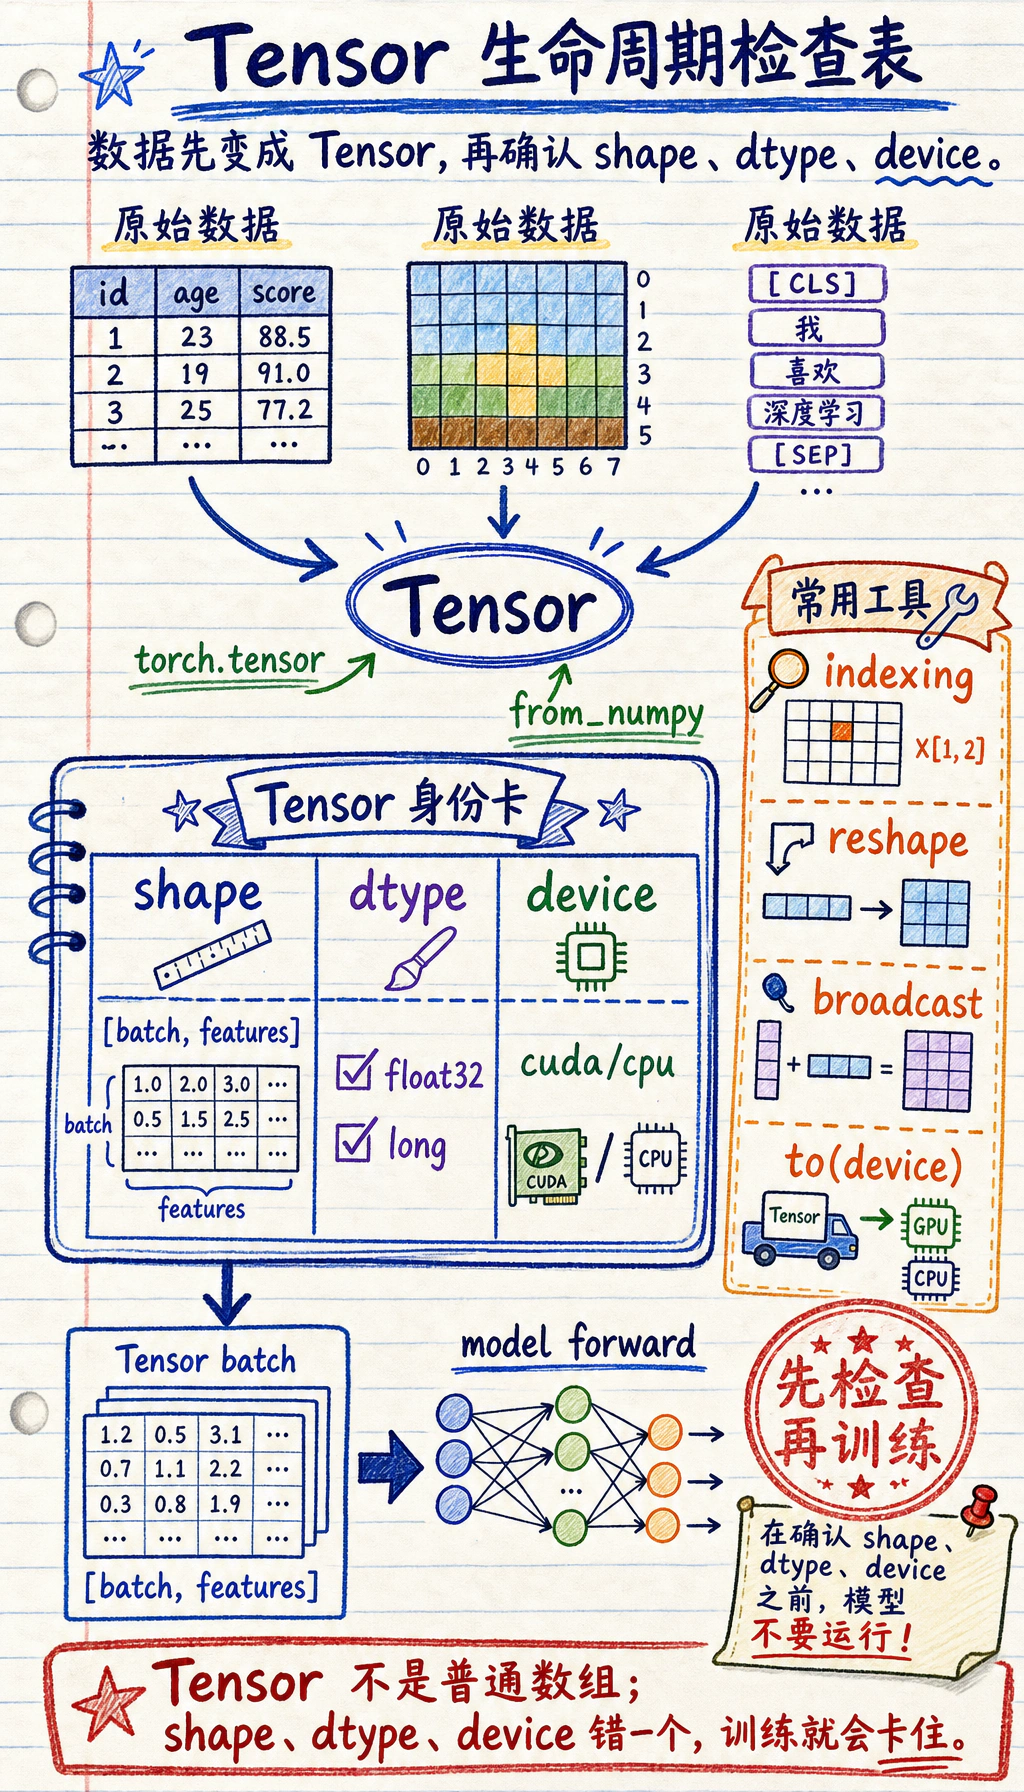 Tensor 生命周期检查表
数据先变成 Tensor, 再确认 shape、dtype、device。
原始数据
id age score
1 23 88.5
2 19 91.0
3 25 77.2
... ... ...
原始数据
0
1
2
3
4
5
0 1 2 3 4 5 6 7
原始数据
[CLS]
我
喜欢
深度学习
[SEP]
...
Tensor
torch.tensor
from_numpy
常用工具
indexing
X[1,2]
reshape
broadcast
+ =
to(device)
Tensor
GPU
CPU
Tensor 身份卡
shape
dtype
device
[batch, features]
batch
1.0 2.0 3.0 ...
0.5 1.5 2.5 ...
... ... ... ...
features
float32
long
cuda/cpu
CUDA / CPU
Tensor batch
1.2 0.5 3.1 ...
0.7 1.1 2.2 ...
0.3 0.8 1.9 ...
... ... ... ...
[batch, features]
model forward
...
先检查
再训练
在确认 shape、
dtype、device
之前, 模型
不要运行!
Tensor 不是普通数组;
shape、dtype、device 错一个, 训练就会卡住。